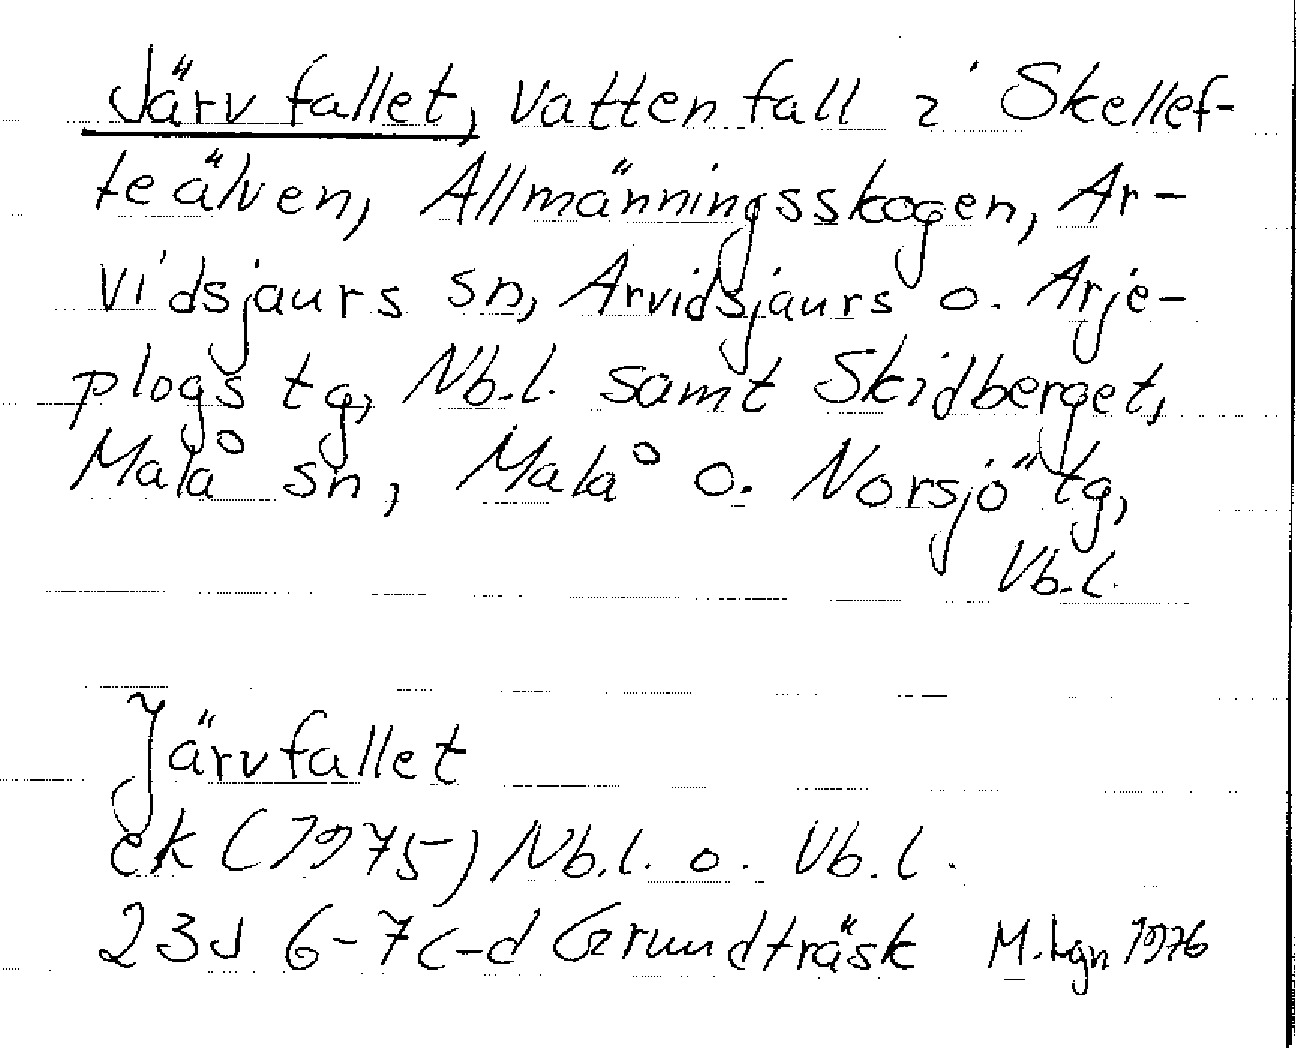 Järvfallet, vattenfall i Skellef-
teälven, Allmänningsskogen, Ar-
vidsjaurs sn, Arvidsjaurs o. Arje-
plogs tg, Nb.l. samt Skidberget,
Malå sn, Malå o. Norsjö tg,
Vb.l.
Järvfallet
ek (1975) Nb.l. o. Vb.l.
23J 6-7c-d Grundträsk M.Lgn 1976